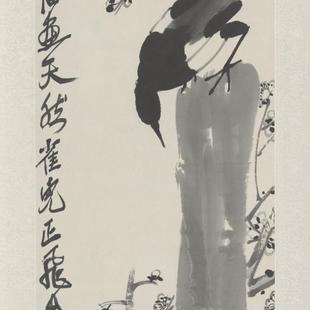 畫天然雀兒正飛